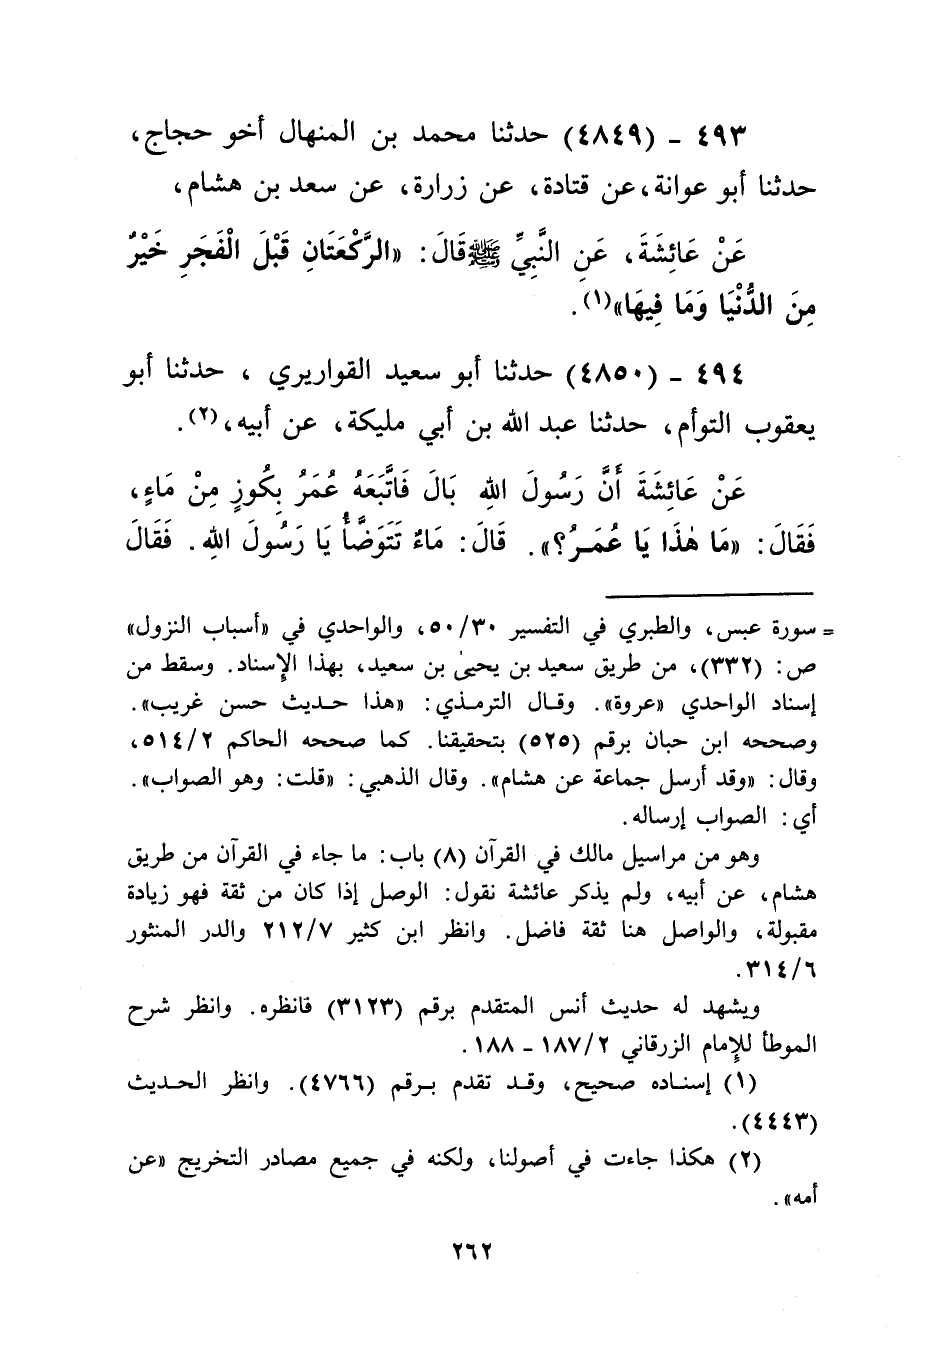 ٤٩٣ - (٤٨٤٩) حدثنا محمد بن المنهال أخو حجاج،
حدثنا أبو عوانة، عن قتادة، عن زرارة، عن سعد بن هشام،
عَنْ عَائِشَةَ، عَنِ النَّبِيِّ ﷺ قَالَ: «الرَّكْعَتَانِ قَبْلَ الْفَجَرِ خَيْرٌ
مِنَ الدُّنْيَا وَمَا فِيهَا»(١).
٤٩٤ - (٤٨٥٠) حدثنا أبو سعيد القواريري ، حدثنا أبو
يعقوب التوأم، حدثنا عبد الله بن أبي مليكة، عن أبيه،(٢).
عَنْ عَائِشَةَ أَنَّ رَسُولَ اللهِ بَالَ فَاتَّبَعَهُ عُمَرُ بِكُوزٍ مِنْ مَاءٍ،
فَقَالَ: «مَا هٰذَا يَا عُمَـرُ؟». قَالَ: مَاءٌ تَتَوَضَّأُ يَا رَسُولَ اللهِ. فَقَالَ
= سورة عبس، والطبري في التفسير ٥٠/٣٠، والواحدي في «أسباب النزول»
ص: (٣٣٢)، من طريق سعيد بن يحيىٰ بن سعيد، بهذا الإسناد. وسقط من
إسناد الواحدي «عروة». وقـال الترمـذي: «هذا حـديث حسن غريب».
وصححه ابن حبان برقم (٥٢٥) بتحقيقنا. كما صححه الحاكم ٥١٤/٢،
وقال: «وقد أرسل جماعة عن هشام». وقال الذهبي: «قلت: وهو الصواب».
أي: الصواب إرساله.
وهو من مراسيل مالك في القرآن (٨) باب: ما جاء في القرآن من طريق
هشام، عن أبيه، ولم يذكر عائشة نقول: الوصل إذا كان من ثقة فهو زيادة
مقبولة، والواصل هنا ثقة فاضل. وانظر ابن كثير ٢١٢/٧ والدر المنثور
٣١٤/٦.
ويشهد له حديث أنس المتقدم برقم (٣١٢٣) فانظره. وانظر شرح
الموطأ للإمام الزرقاني ١٨٧/٢ - ١٨٨.
(١) إسنـاده صحيح، وقـد تقدم بـرقم (٤٧٦٦). وانظر الحـديث
(٤٤٤٣).
(٢) هكذا جاءت في أصولنا، ولكنه في جميع مصادر التخريج «عن
أمه».
٢٦٢